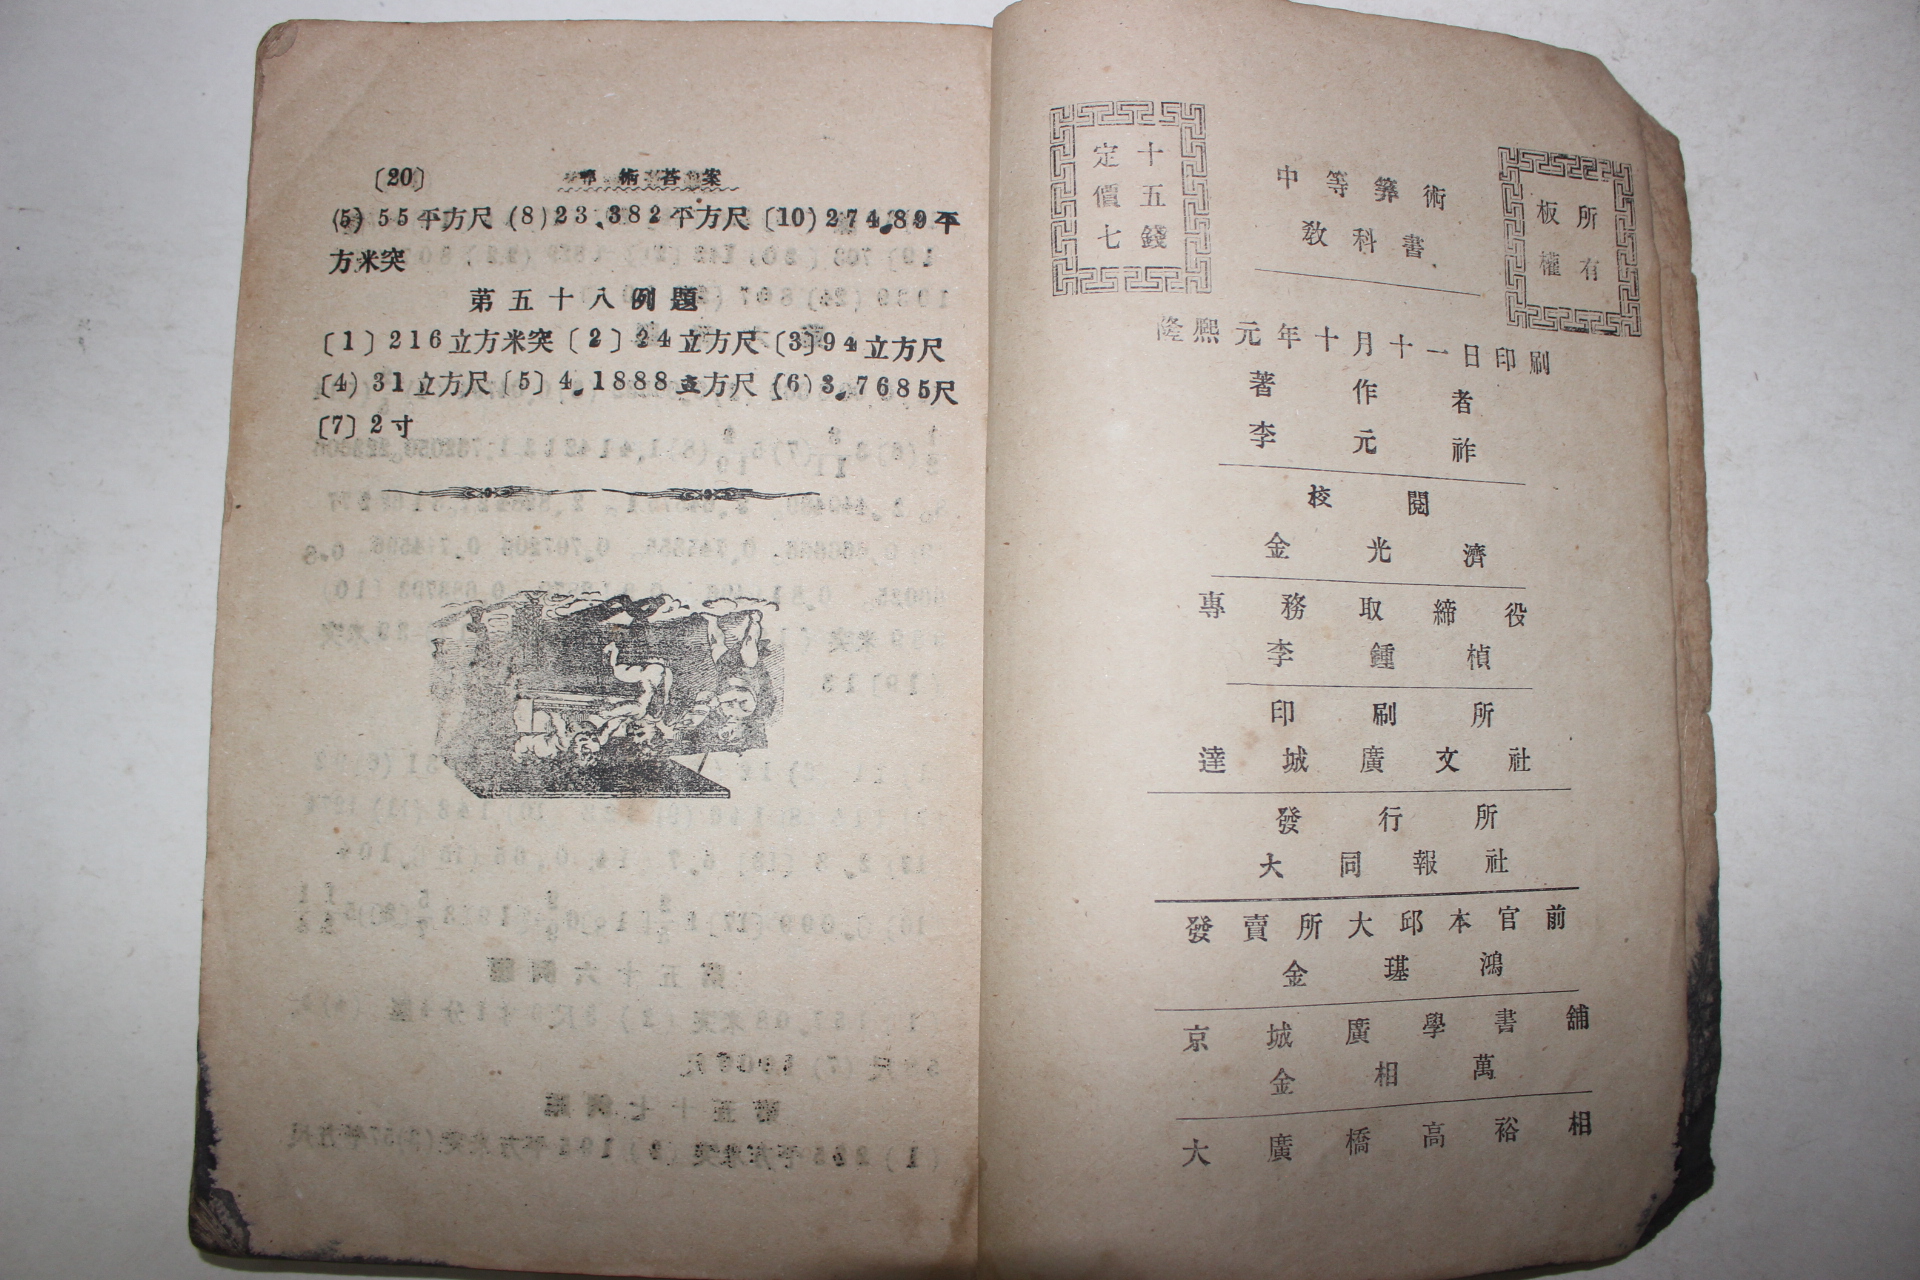 〔20〕 算術答案
(5) 55平方尺 (8) 23.382平方尺 〔10) 274.89平
方米突
第五十八例題
〔1〕216立方米突〔2〕24立方尺〔3〕94立方尺
〔4) 31立方尺〔5〕4.1888立方尺 (6) 3.7685尺
〔7〕2寸
定價七
十五錢
中等算術
敎科書
板權
所有
隆熙元年十月十一日印刷
著作者
李元祚
校閱
金光濟
專務取締役
李鍾楨
印刷所
達城廣文社
發行所
大同報社
發賣所大邱本官前
金璂鴻
京城廣學書舖
金相萬
大廣橋高裕相